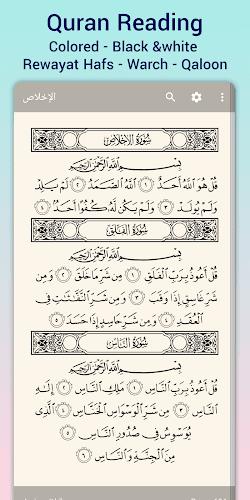 Quran Reading
Colored - Black &white
Rewayat Hafs - Warch - Qaloon
الإخلاص
سُورَةُ الإِخْلَاصِ
بِسْمِ ٱللَّهِ ٱلرَّحْمَٰنِ ٱلرَّحِيمِ
قُلْ هُوَ ٱللَّهُ أَحَدٌ ١ ٱللَّهُ ٱلصَّمَدُ ٢ لَمْ يَلِدْ
وَلَمْ يُولَدْ ٣ وَلَمْ يَكُن لَّهُۥ كُفُوًا أَحَدٌ ٤
سُورَةُ الفَلَقِ
بِسْمِ ٱللَّهِ ٱلرَّحْمَٰنِ ٱلرَّحِيمِ
قُلْ أَعُوذُ بِرَبِّ ٱلْفَلَقِ ١ مِن شَرِّ مَا خَلَقَ ٢ وَمِن
شَرِّ غَاسِقٍ إِذَا وَقَبَ ٣ وَمِن شَرِّ ٱلنَّفَّٰثَٰتِ فِى
ٱلْعُقَدِ ٤ وَمِن شَرِّ حَاسِدٍ إِذَا حَسَدَ ٥
سُورَةُ النَّاسِ
بِسْمِ ٱللَّهِ ٱلرَّحْمَٰنِ ٱلرَّحِيمِ
قُلْ أَعُوذُ بِرَبِّ ٱلنَّاسِ ١ مَلِكِ ٱلنَّاسِ ٢ إِلَٰهِ
ٱلنَّاسِ ٣ مِن شَرِّ ٱلْوَسْوَاسِ ٱلْخَنَّاسِ ٤ ٱلَّذِى
يُوَسْوِسُ فِى صُدُورِ ٱلنَّاسِ ٥
مِنَ ٱلْجِنَّةِ وَٱلنَّاسِ ٦